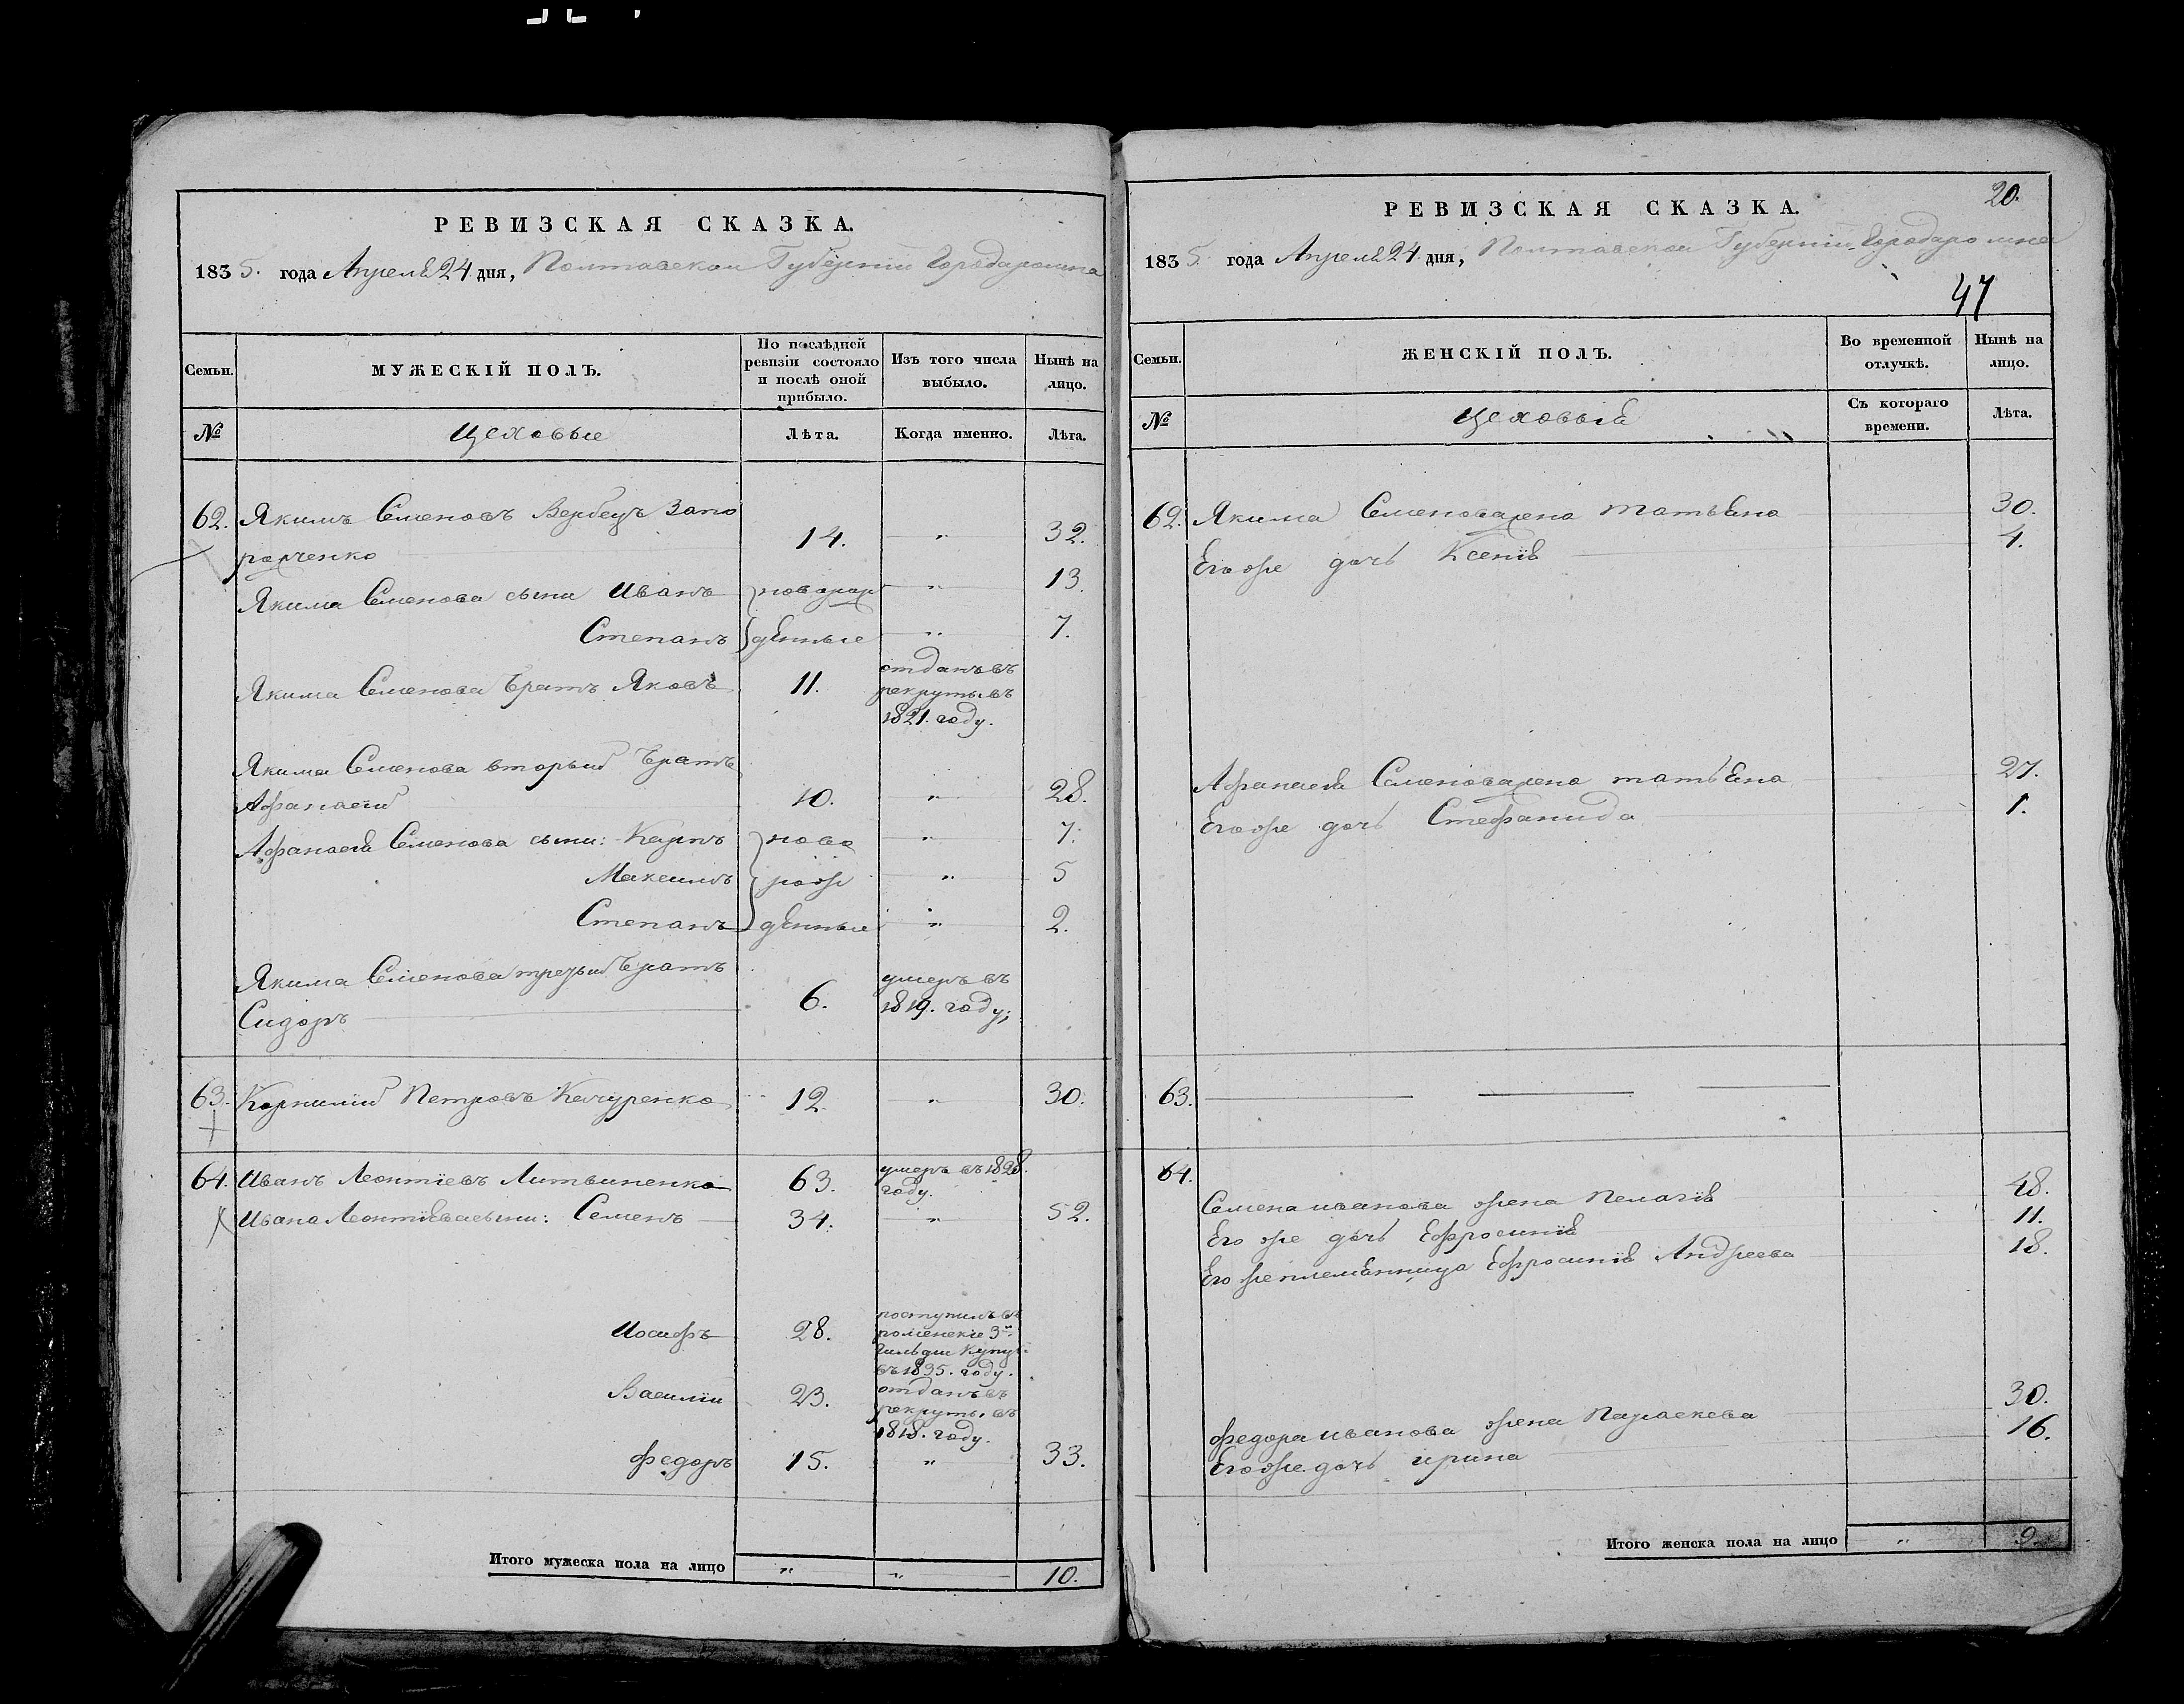 РЕВИЗСКАЯ СКАЗКА.
1835. года Апреля 24 дня, Полтавской Губерніи Города ромна
Семьи. МУЖЕСКІЙ ПОЛЪ. По послѣдней ревизіи состояло и послѣ оной прибыло. Изъ того числа выбыло. Нынѣ на лицо.
№ Цеховые Лѣта. Когда именно. Лѣта.
62. Якимъ Семеновъ Вербецъ Запо
рожченко 14. „ 32.
Якима Семенова сыни Иванъ новорож „ 13.
Степанъ денные „ 7.
Якима Семенова братъ Яковъ 11. отданъ въ
рекруты въ
1821. году.
Якима Семенова вторый братъ
Афанасій 10. „ 28.
Афанасія Семенова сыни: Карпъ ново „ 7.
Максимъ рож „ 5
Степанъ денные „ 2.
Якима Семенова третьий братъ
Сидоръ 6. умеръ въ
1819. году;
63. Корнилій Петровъ Качуренко 12 „ 30.
64. Иванъ Леонтіевъ Литвиненко 63. умеръ въ 1828.
году.
Ивана Леонтіева сыни: Семенъ 34. „ 52.
Иосифъ 28. поступилъ въ
роменские 3й
гильдии купцы
въ 1835. году.
Василии 23. отданъ въ
рекруты въ
1818. году.
Федоръ 15. „ 33.
Итого мужеска пола на лицо „ „ 10.
20.
РЕВИЗСКАЯ СКАЗКА.
1835. года Апреля 24. дня, Полтавской Губерніи Города ромна
47
Семьи. ЖЕНСКІЙ ПОЛЪ. Во временной отлучкѣ. Нынѣ на лицо.
№ Цеховыя Съ котораго времени. Лѣта.
62. Якима Семенова жена татьяна 30.
Его же дочь Ксенія 4.
Афанасія Семенова жена татьяна 27.
Его же дочь Стефанида 1.
63.
64.
Семена иванова жена Пелагія 48.
Его же дочь Ефросинія 11.
Его же племянница Ефросинія Андреева 18.
Федора иванова жена Параскева 30.
Его же дочь ирина 16.
Итого женска пола на лицо „ 9.